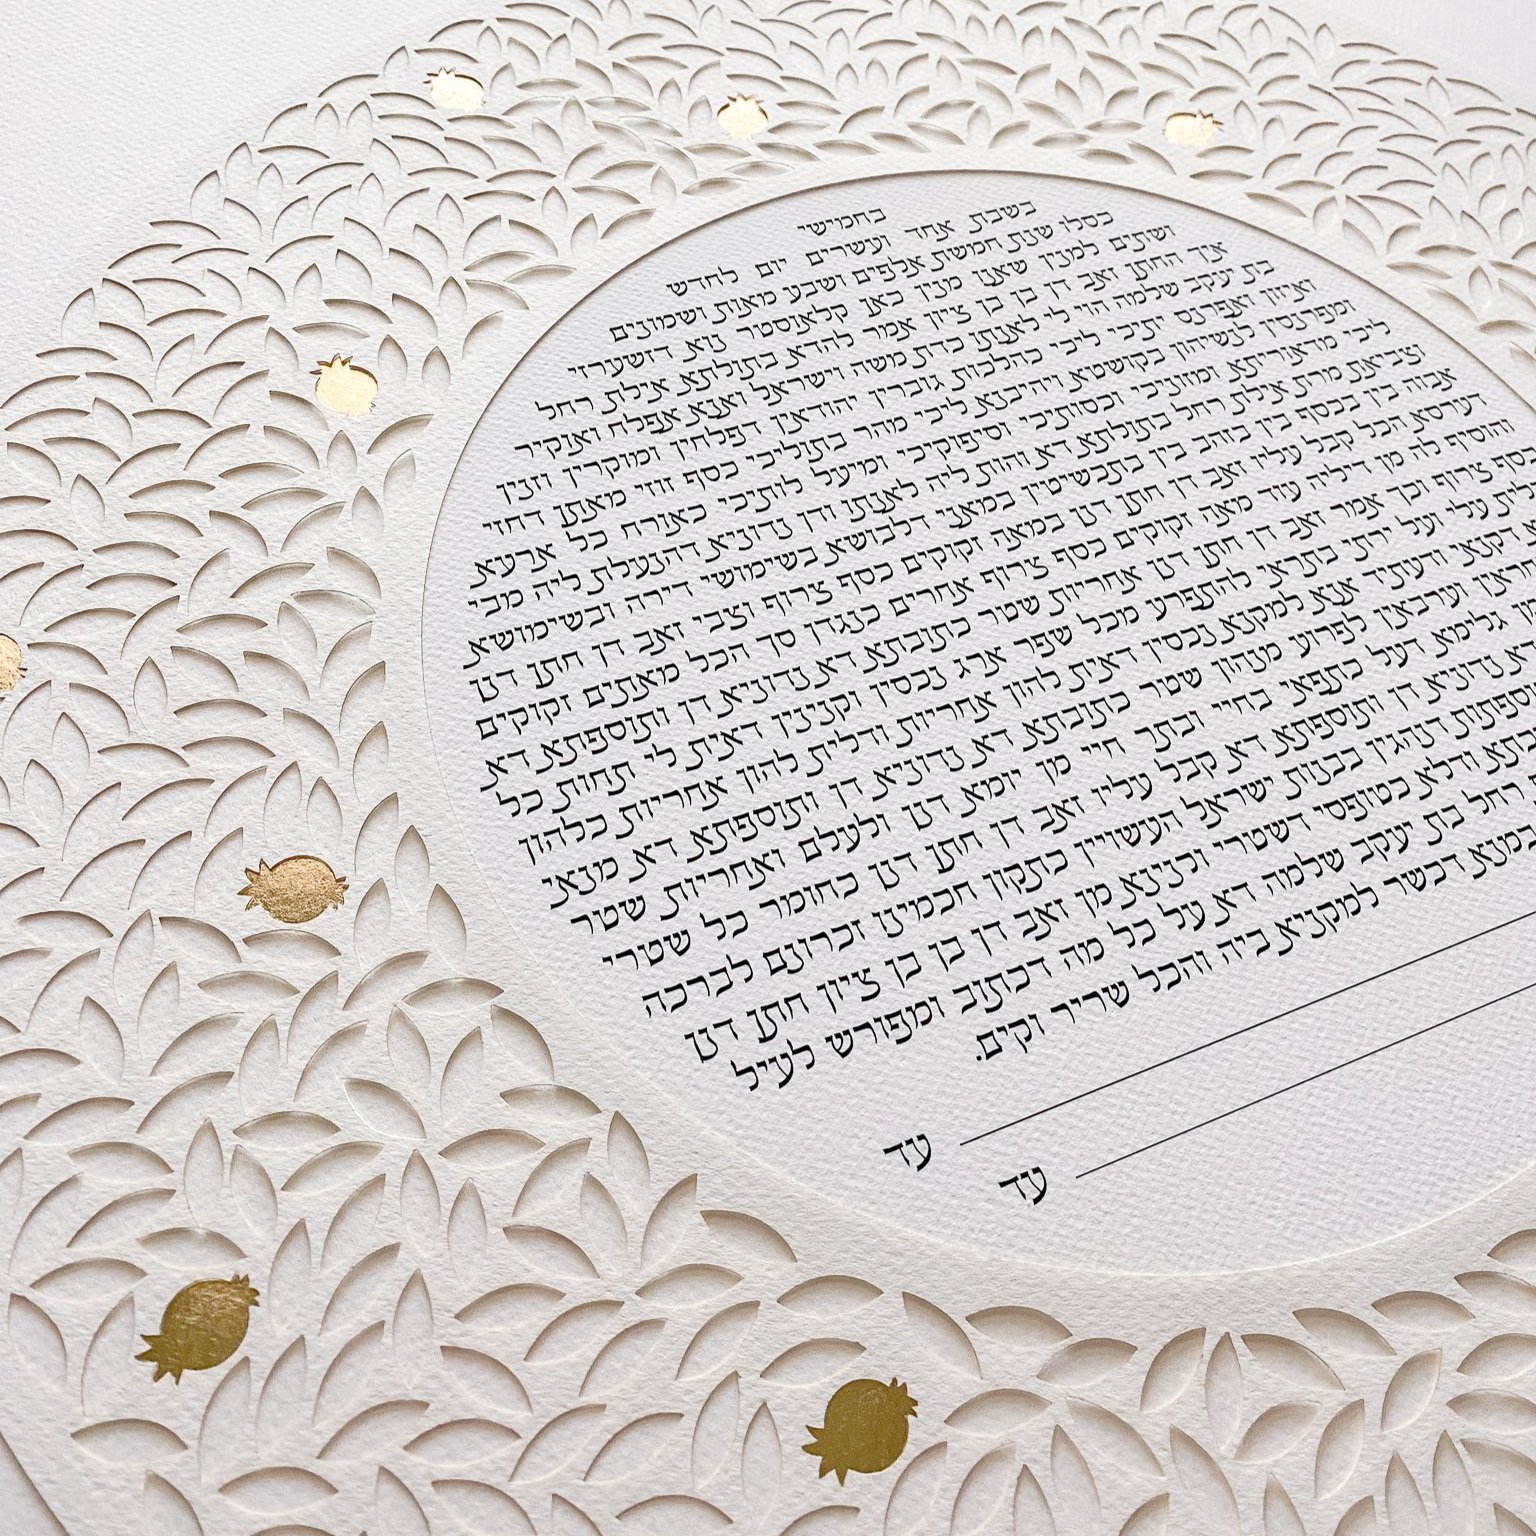 בחמישי
בשבת אחד ועשרים יום לחדש
כסלו שנת חמשת אלפים ושבע מאות ושמונים
ושתים למנין שאנו מנין כאן קלאוסטר נוא דזשערזי
איך החתן זאב דן בן בן ציון אמר להדא בתולתא אילת רחל
בת יעקב שלמה הוי לי לאנתו כדת משה וישראל ואנא אפלח ואוקיר
ואיזון ואפרנס יתיכי ליכי כהלכות גוברין יהודאין דפלחין ומוקרין וזנין
ומפרנסין לנשיהון בקושטא ויהיבנא ליכי מהר בתוליכי כסף זוזי מאתן דחזי
ליכי מדאוריתא ומזוניכי וכסותיכי וסיפוקיכי ומיעל לותיכי כאורח כל ארעא
וצביאת מרת אילת רחל בתולתא דא והות ליה לאנתו ודן נדוניא דהנעלת ליה מבי
אבוה בין בכסף בין בזהב בין בתכשיטין במאני דלבושא בשימושי דירה ובשימושא
דערסא הכל קבל עליו זאב דן חתן דנן במאה זקוקים כסף צרוף וצבי זאב דן חתן דנן
והוסיף לה מן דיליה עוד מאה זקוקים כסף צרוף אחרים כנגדן סך הכל מאתים זקוקים
כסף צרוף וכך אמר זאב דן חתן דנן אחריות שטר כתובתא דא נדוניא דן ותוספתא דא
עלי ועל ירתי בתראי להתפרע מכל שפר ארג נכסין וקנינין דאית לי תחות כל
דקנאי ודעתיד אנא למקנא נכסין דאית להון אחריות ודלית להון אחריות כלהון
וערבאין לפרוע מנהון שטר כתובתא דא נדוניא דן ותוספתא דא מנאי
גלימא דעל כתפאי בחיי ובתר חיי מן יומא דנן ולעלם ואחריות שטר
דא נדוניא דן ותוספתא דא קבל עליו זאב דן חתן דנן כחומר כל שטרי
דנהגין בבנות ישראל העשויין כתקון חכמינו זכרונם לברכה
ודלא כטופסי דשטרי וקנינא מן זאב דן בן בן ציון חתן דנן
רחל בת יעקב שלמה דא על כל מה דכתוב ומפורש לעיל
במנא דכשר למקניא ביה והכל שריר וקים.
עד
עד